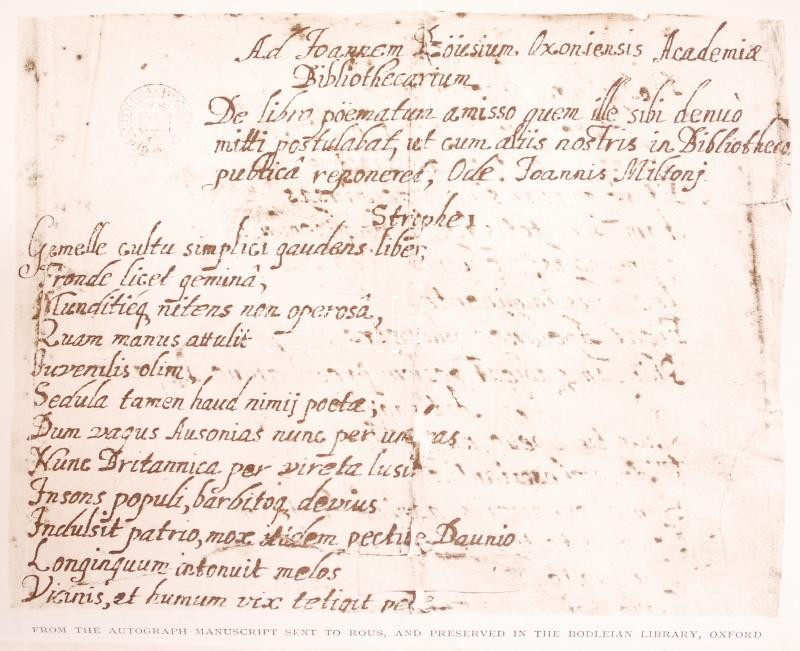 Ad Joannem Röusium Oxoniensis Academiæ
Bibliothecarium
De libro pöematum amisso quem ille sibi denuò
mitti postulabat, ut cum aliis nostris in Bibliotheca
publicâ reponeret, Ode. Joannis Miltonj
Strophe 1
Gemelle cultu simplici gaudens liber,
Fronde licet geminâ,
Munditieq nitens non operosâ,
Quam manus attulit
Juvenilis olim,
Sedula tamen haud nimij poetæ;
Dum vagus Ausonias nunc per umbras
Nunc Britannica per vireta lusit
Insons populi, barbitoq devius
Indulsit patrio, mox itidem pectine Daunio
Longinquum intonuit melos
Vicinis, et humum vix tetigit pede
FROM THE AUTOGRAPH MANUSCRIPT SENT TO ROUS, AND PRESERVED IN THE BODLEIAN LIBRARY, OXFORD